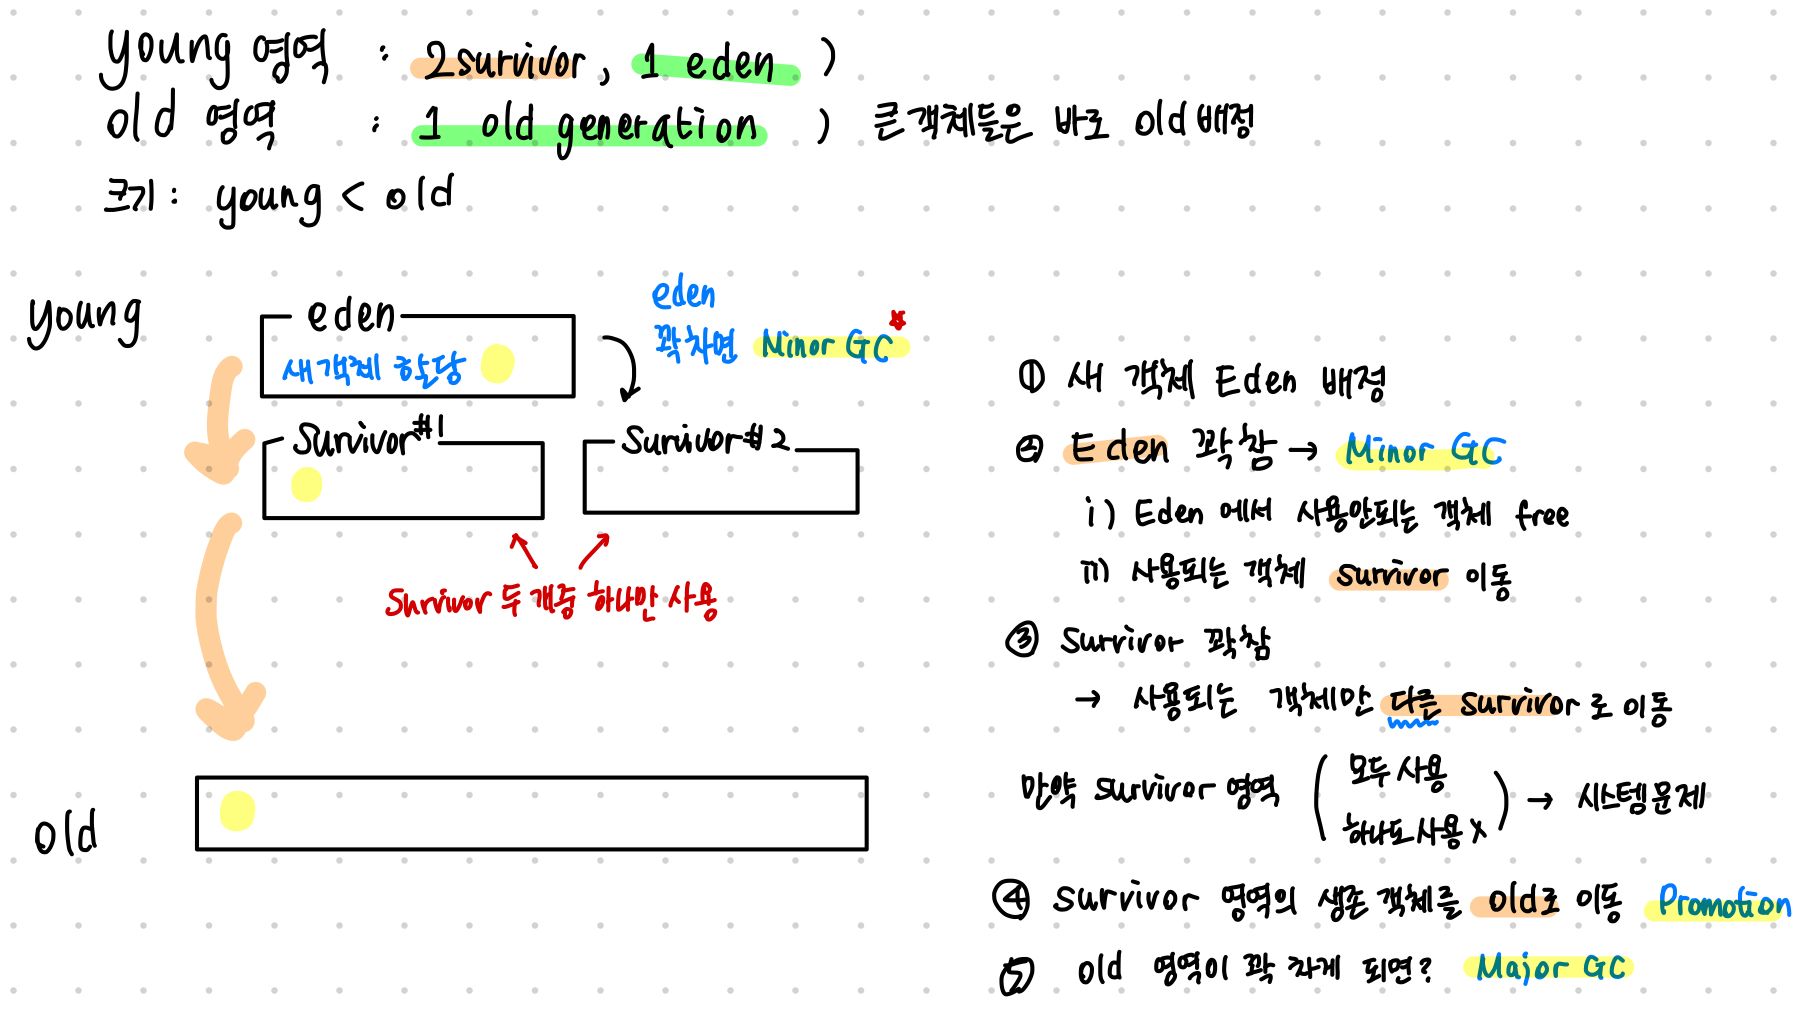 young 영역 : 2survivor, 1 eden )
old 영역 : 1 old generation ) 큰 객체들은 바로 old 배정
크기 : young < old
young
eden
새 객체 할당
eden
꽉 차면 Minor GC
Survivor#1
Survivor#2
Survivor 두 개중 하나만 사용
old
① 새 객체 Eden 배정
② Eden 꽉 참 → Minor GC
i) Eden 에서 사용안되는 객체 free
ii) 사용되는 객체 survivor 이동
③ Survivor 꽉참
→ 사용되는 객체만 다른 survivor로 이동
만약 survivor 영역 ( 모두 사용
하나도 사용 X ) → 시스템 문제
④ survivor 영역의 생존 객체를 old로 이동 Promotion
⑤ old 영역이 꽉 차게 되면? Major GC